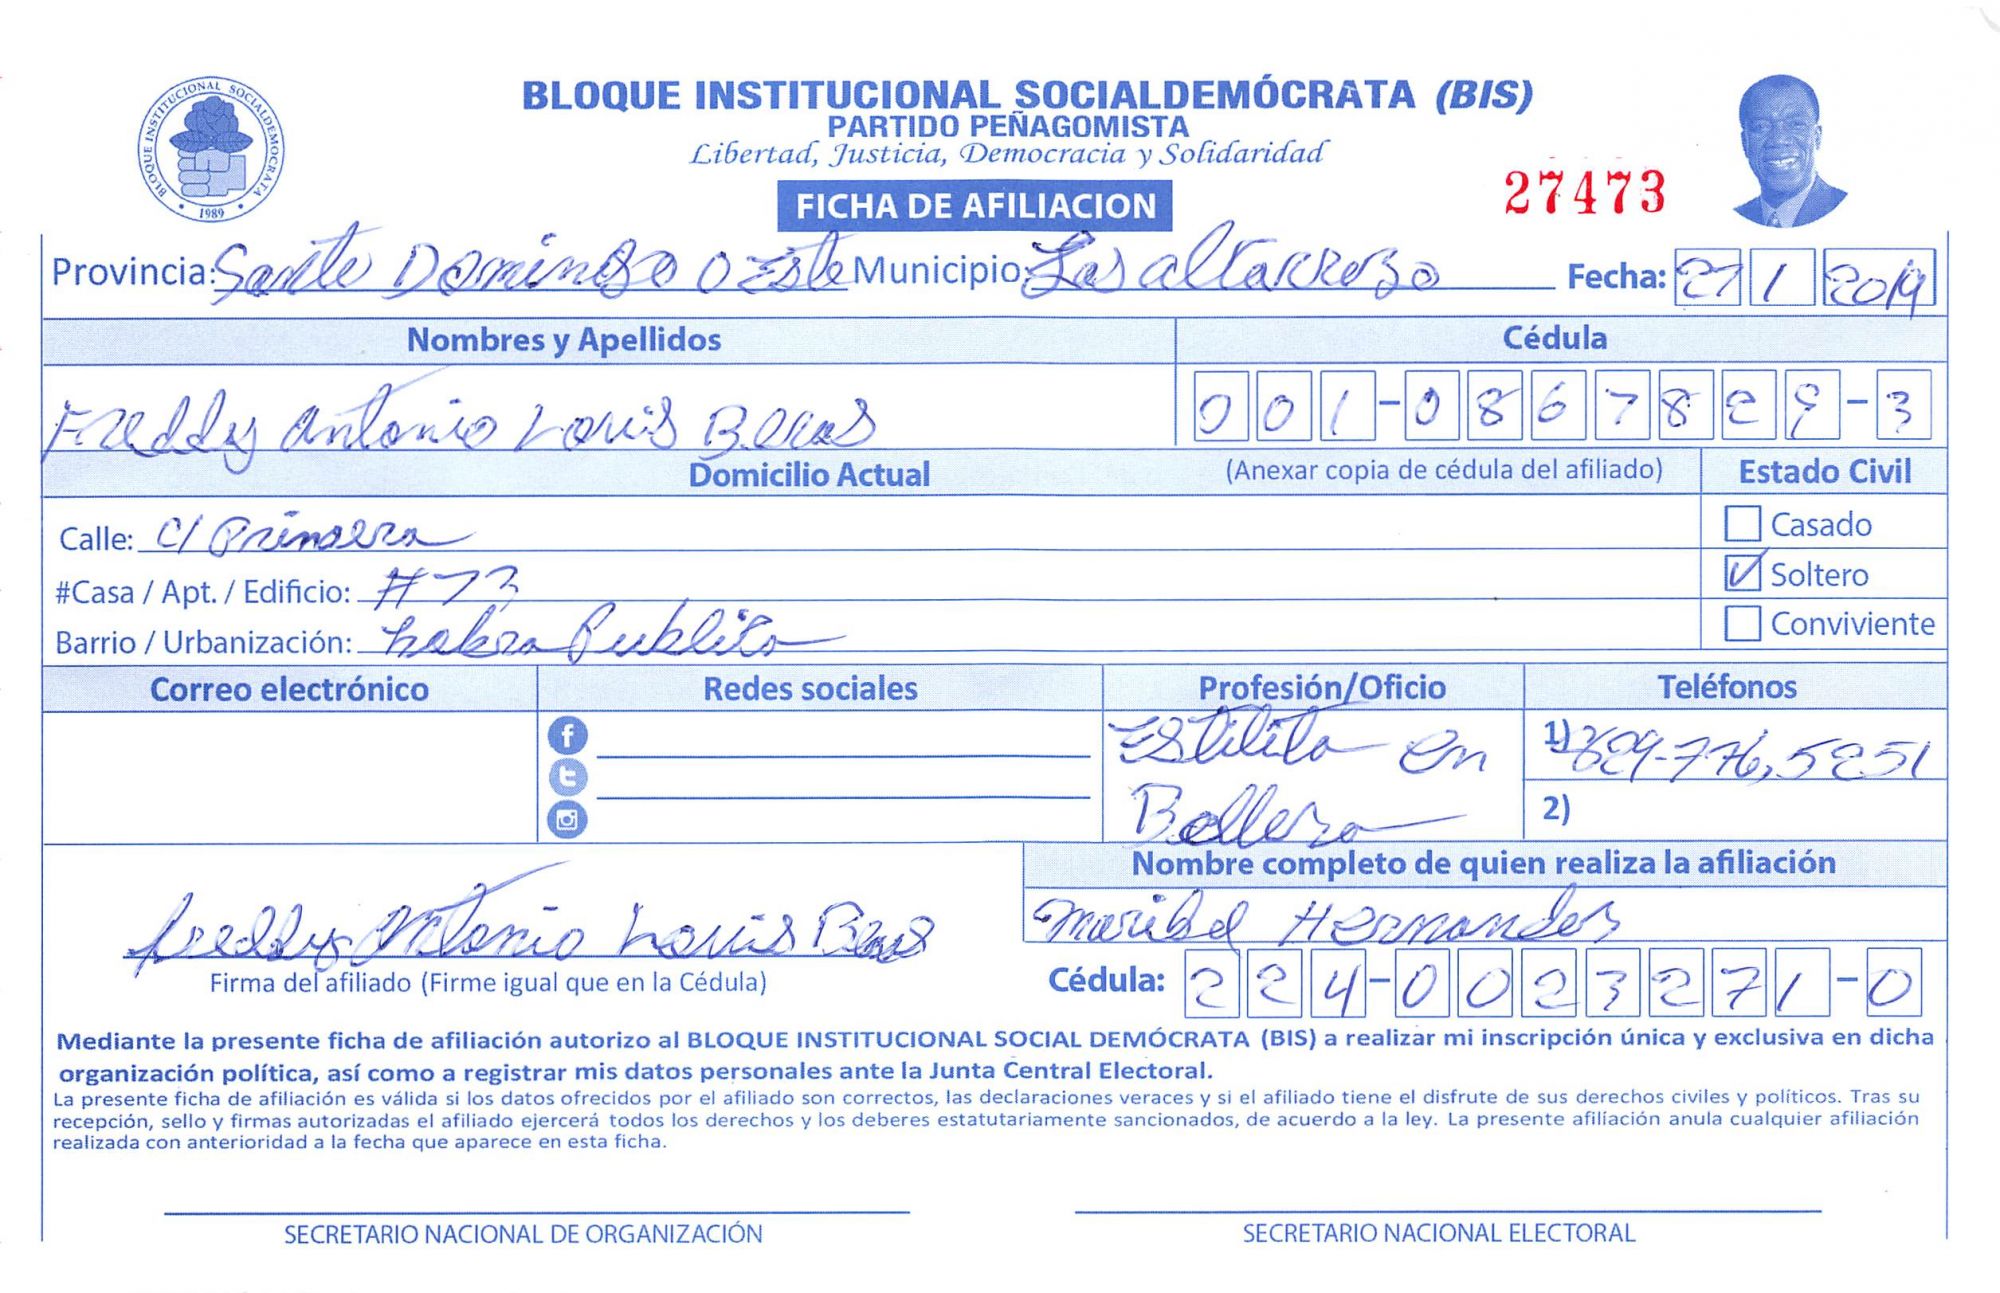 BLOQUE INSTITUCIONAL SOCIALDEMÓCRATA (BIS)
PARTIDO PEÑAGOMISTA
Libertad, Justicia, Democracia y Solidaridad
BLOQUE INSTITUCIONAL SOCIALDEMOCRATA
1989
27473
FICHA DE AFILIACION
Provincia: Santo Domingo Oeste Municipio: Los alcarrizo Fecha: 27 1 2019
Nombres y Apellidos Cédula
Freddy Antonio Louis 001-0867829-3
Domicilio Actual (Anexar copia de cédula del afiliado) Estado Civil
Calle: C/ Primera Casado
#Casa / Apt. / Edificio: #73 Soltero
Barrio / Urbanización: Conviviente
Correo electrónico Redes sociales Profesión/Oficio Teléfonos
Estilita en 1) 829-776,5251
Belleza 2)
Nombre completo de quien realiza la afiliación
Freddy Antonio Louis Maribel Hernandez
Firma del afiliado (Firme igual que en la Cédula) Cédula: 224-0023271-0
Mediante la presente ficha de afiliación autorizo al BLOQUE INSTITUCIONAL SOCIAL DEMÓCRATA (BIS) a realizar mi inscripción única y exclusiva en dicha
organización política, así como a registrar mis datos personales ante la Junta Central Electoral.
La presente ficha de afiliación es válida si los datos ofrecidos por el afiliado son correctos, las declaraciones veraces y si el afiliado tiene el disfrute de sus derechos civiles y políticos. Tras su
recepción, sello y firmas autorizadas el afiliado ejercerá todos los derechos y los deberes estatutariamente sancionados, de acuerdo a la ley. La presente afiliación anula cualquier afiliación
realizada con anterioridad a la fecha que aparece en esta ficha.
SECRETARIO NACIONAL DE ORGANIZACIÓN SECRETARIO NACIONAL ELECTORAL